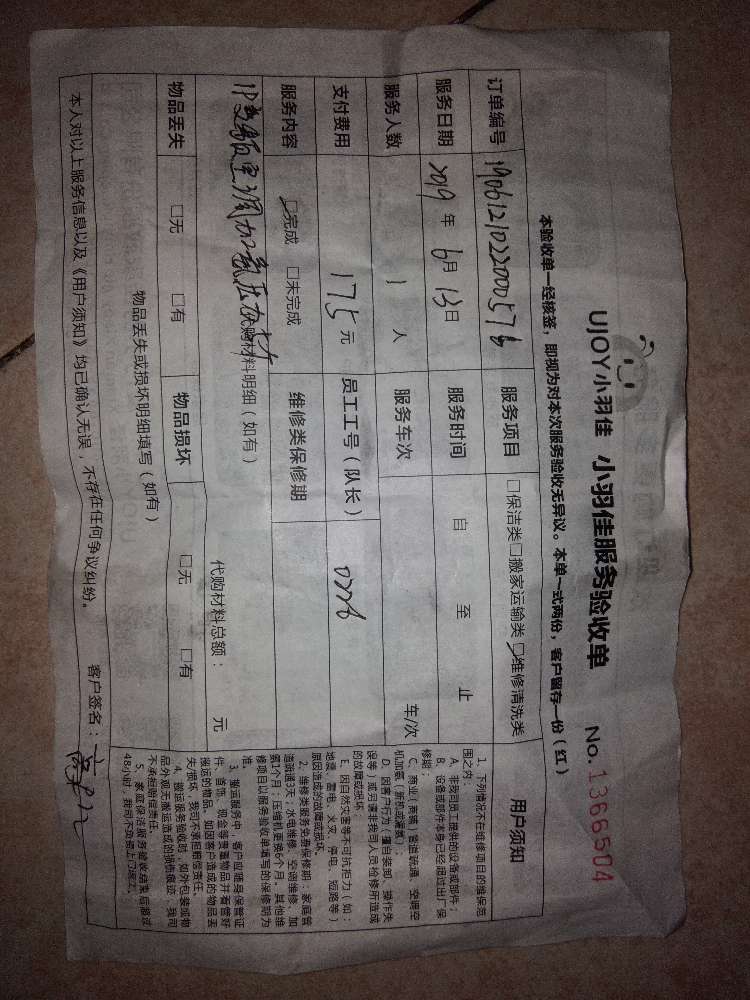 UJOY小羽佳 小羽佳服务验收单 No. 1366504
本验收单一经核签，即视为对本次服务验收无异议。本单一式两份，客户留存一份（红）
订单编号 1906121022000576 服务项目 □保洁类□搬家运输类☑维修清洗类 用户须知
服务日期 2019 年 6月 13日 服务时间 自 至 止
服务人数 1 人 服务车次 车/次
支付费用 175元 员工工号（队长） 0226
服务内容 ☑完成 □未完成 维修类保修期
1P变频空调加氟压力
代购材料明细（如有） 代购材料总额： 元
物品丢失 □无 □有 物品损坏 □无 □有
物品丢失或损坏明细填写（如有）
1、下列情况不在维修项目的维保范
围之内：
A、非我司员工提供的设备或部件；
B、设备或部件本身已经超过出厂保
修期；
C、商业（商铺）管道疏通、空调空
机加氨（新机或灌氨）；
D、因客户行为（擅自装卸、操作失
误等）或另请非我司人员检修所造成
的故障或损坏；
E、因自然灾害等不可抗拒力（如：
地震、雷电、火灾、停电、短路等）
原因造成的故障或损坏。
2、维修类服务免费保修期：家庭管
道疏通3天；水电维修、空调维修、加
氨1个月；压缩机更换6个月。其他维
修项目以服务验收单填写的保修期为
准。
3、搬运服务中，客户应随身保管证
件、首饰、现金等贵重物品并看管好
搬运的物品。如因客户造成的物品丢
失/损坏，我司不承担赔偿责任。
4、搬运服务验收后，如外包装或物
品外观无搬运造成的损伤痕迹，我司
不承担赔偿责任。
5、家庭保洁服务验收结束后超过
48小时，我司不负责上门返工。
本人对以上服务信息以及《用户须知》均已确认无误，不存在任何争议纠纷。 客户签名：